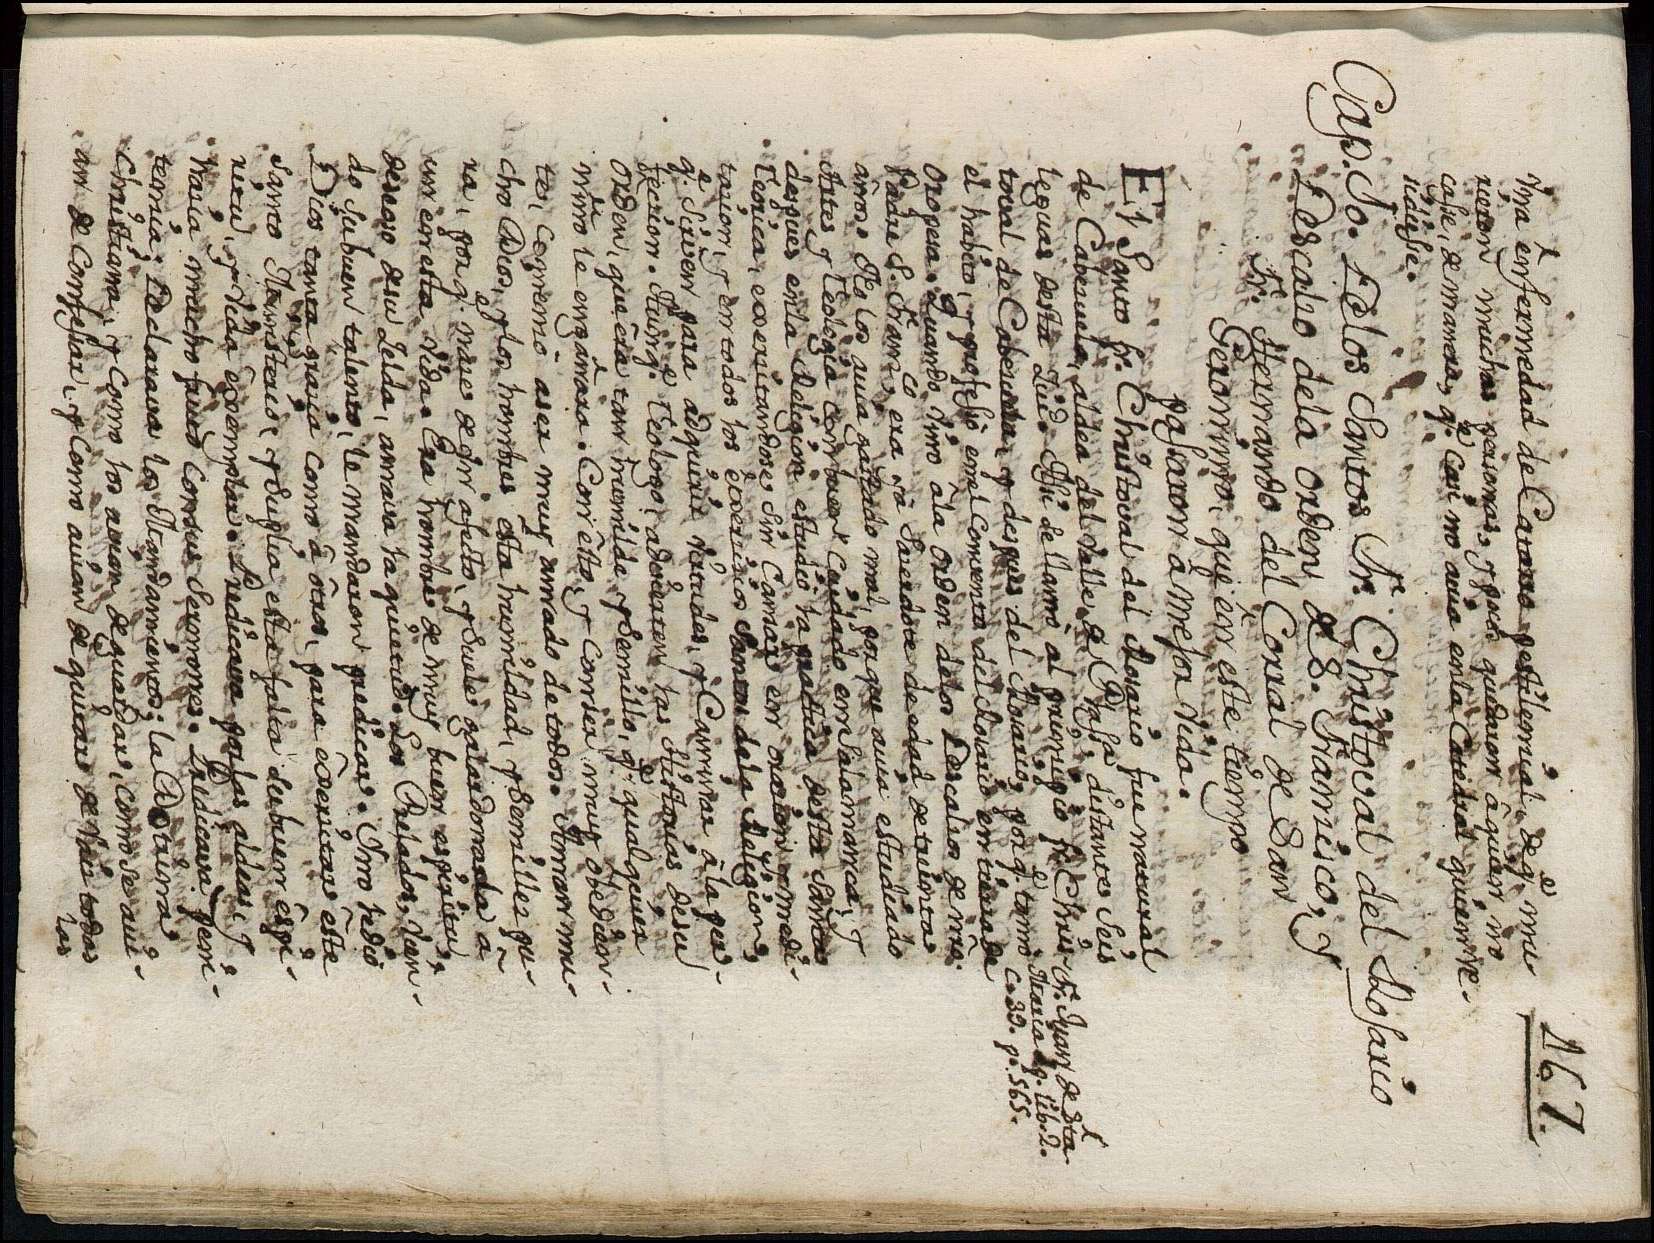 167.
Una enfermedad de Catarro pestilencial, de q. mu-
rieron muchas personas, y pocas quedaron â quien no
tocase, de manera, q. Casi no auia en la Catedral quien re-
sidiese.
Cap. 50. De los Santos Fr. Christoual del Rosario
Descalzo de la orden de S. Francisco, y
Fr. Hernando del Corral de San
Geronimo, que en este tiempo
pasaron a mejor vida.
El Santo fr. Christoual del Rosario fue natural
de Cabezuela, aldea del valle de Plasa. distantes Seis
leguas desta Ciud. Alli se llamò al principio fr. Chris-
toual de Cabezuela, y despues del Rosario, porq. tomò
el habito, y profesò en el Conuento del Rosario en tierra de
Oropesa. Quando vino â la orden de los Descalzos de nro.
Padre S. Franco. era ya Sacerdote de edad de treinta
años. No los auia gastado mal, porque auia estudiado
Artes y Teologia con buen Cuidado en Salamanca, y
despues en la Religion estudiò la practica desta Santa
Teorica, exercitandose sin Cansar en oracion y medi-
tacion, y en todos los exercicios Santos de la Religion,
q. Siruen para adquirir virtudes, y Caminar â la per-
feccion. Aunq. Teologo, adornaron las Reliquias de su
Orden, que era tan humilde y Sencillo, q. qualquiera
niño le engañara. Con esto, y Con ser muy obedien-
te, Comenzò a ser muy amado de todos. Aman mu-
cho Dios, y los hombres esta humildad, y Sencillez pu-
ra, por q. nace de sin afecto, y Suele galardonarla a-
un en esta vida. Era hombre de muy buen espiritu,
deseoso de su Celda, amaua la quietud. Los Prelados, vien-
do su buen talento, le mandaron predicar. Hizo le diò
Dios tanta gracia como â otros, para exercitar este
Santo Ministerio, y Suplia esta falta su buen espi-
ritu, y Vida exemplar. Predicaua por las aldeas, y
hacia mucho fruto Con sus Sermones. Predicaua peni-
tencia; Declaraua los Mandamientos; la Dotrina
Christiana, y Como los auian de guardar, como se aui-
an de Confesar, y Como auian de quitar de sus todas
las
Fr. Juan de Sta.
Maria p. lib. 2.
c. 39. p. 565.